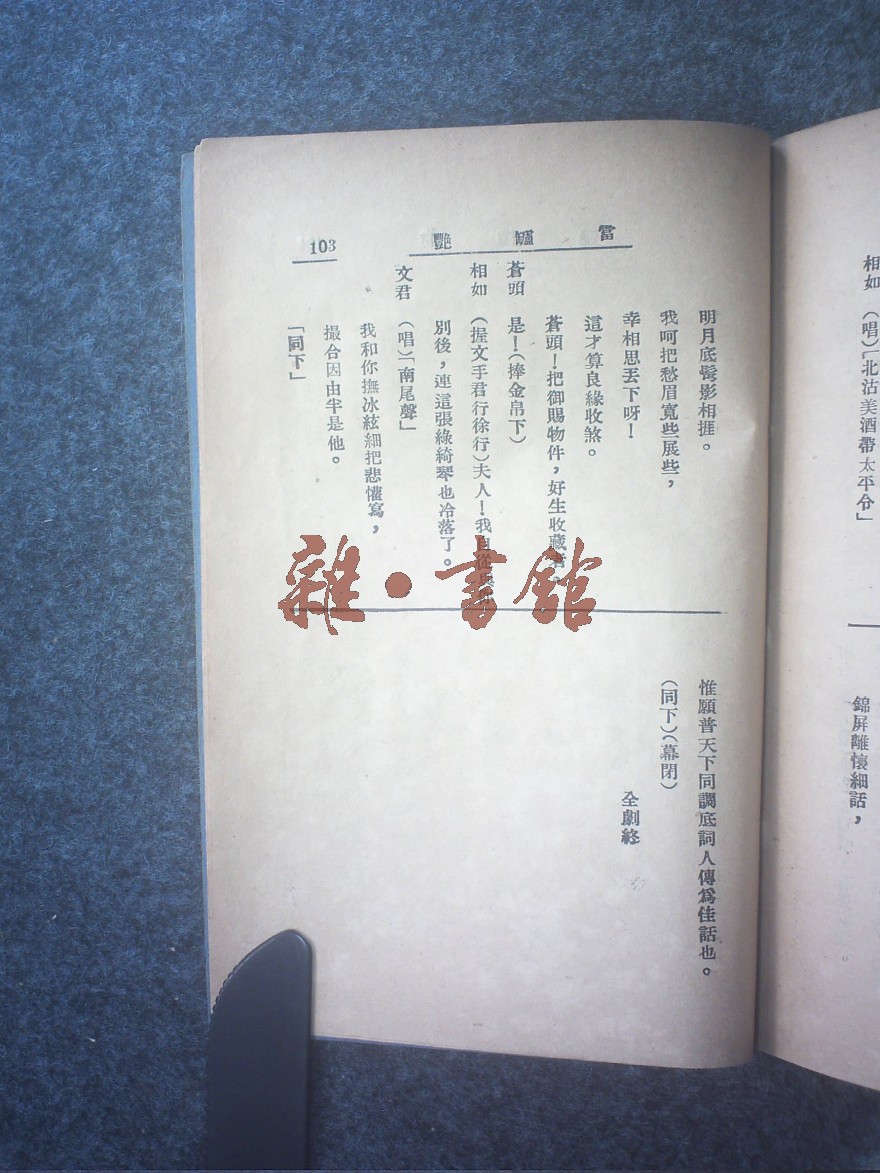 相如　(唱)「北沽美酒帶太平令」
錦屏離懷細話，
當罏艷
103
明月底鬢影相捱。
我呵把愁眉寬些展些，
幸相思丟下呀！
這才算良緣收煞。
蒼頭！把御賜物件，好生收藏者
蒼頭　是！(捧金帛下)
相如　(握文手君行徐行)夫人！我自從
別後，連這張綠綺琴也冷落了。
文君　(唱)「南尾聲」
我和你撫冰絃細把悲懽寫，
撮合因由半是他。
「同下」
惟願普天下同調底詞人傳爲佳話也。
(同下)(幕閉)
全劇終
雜·書館